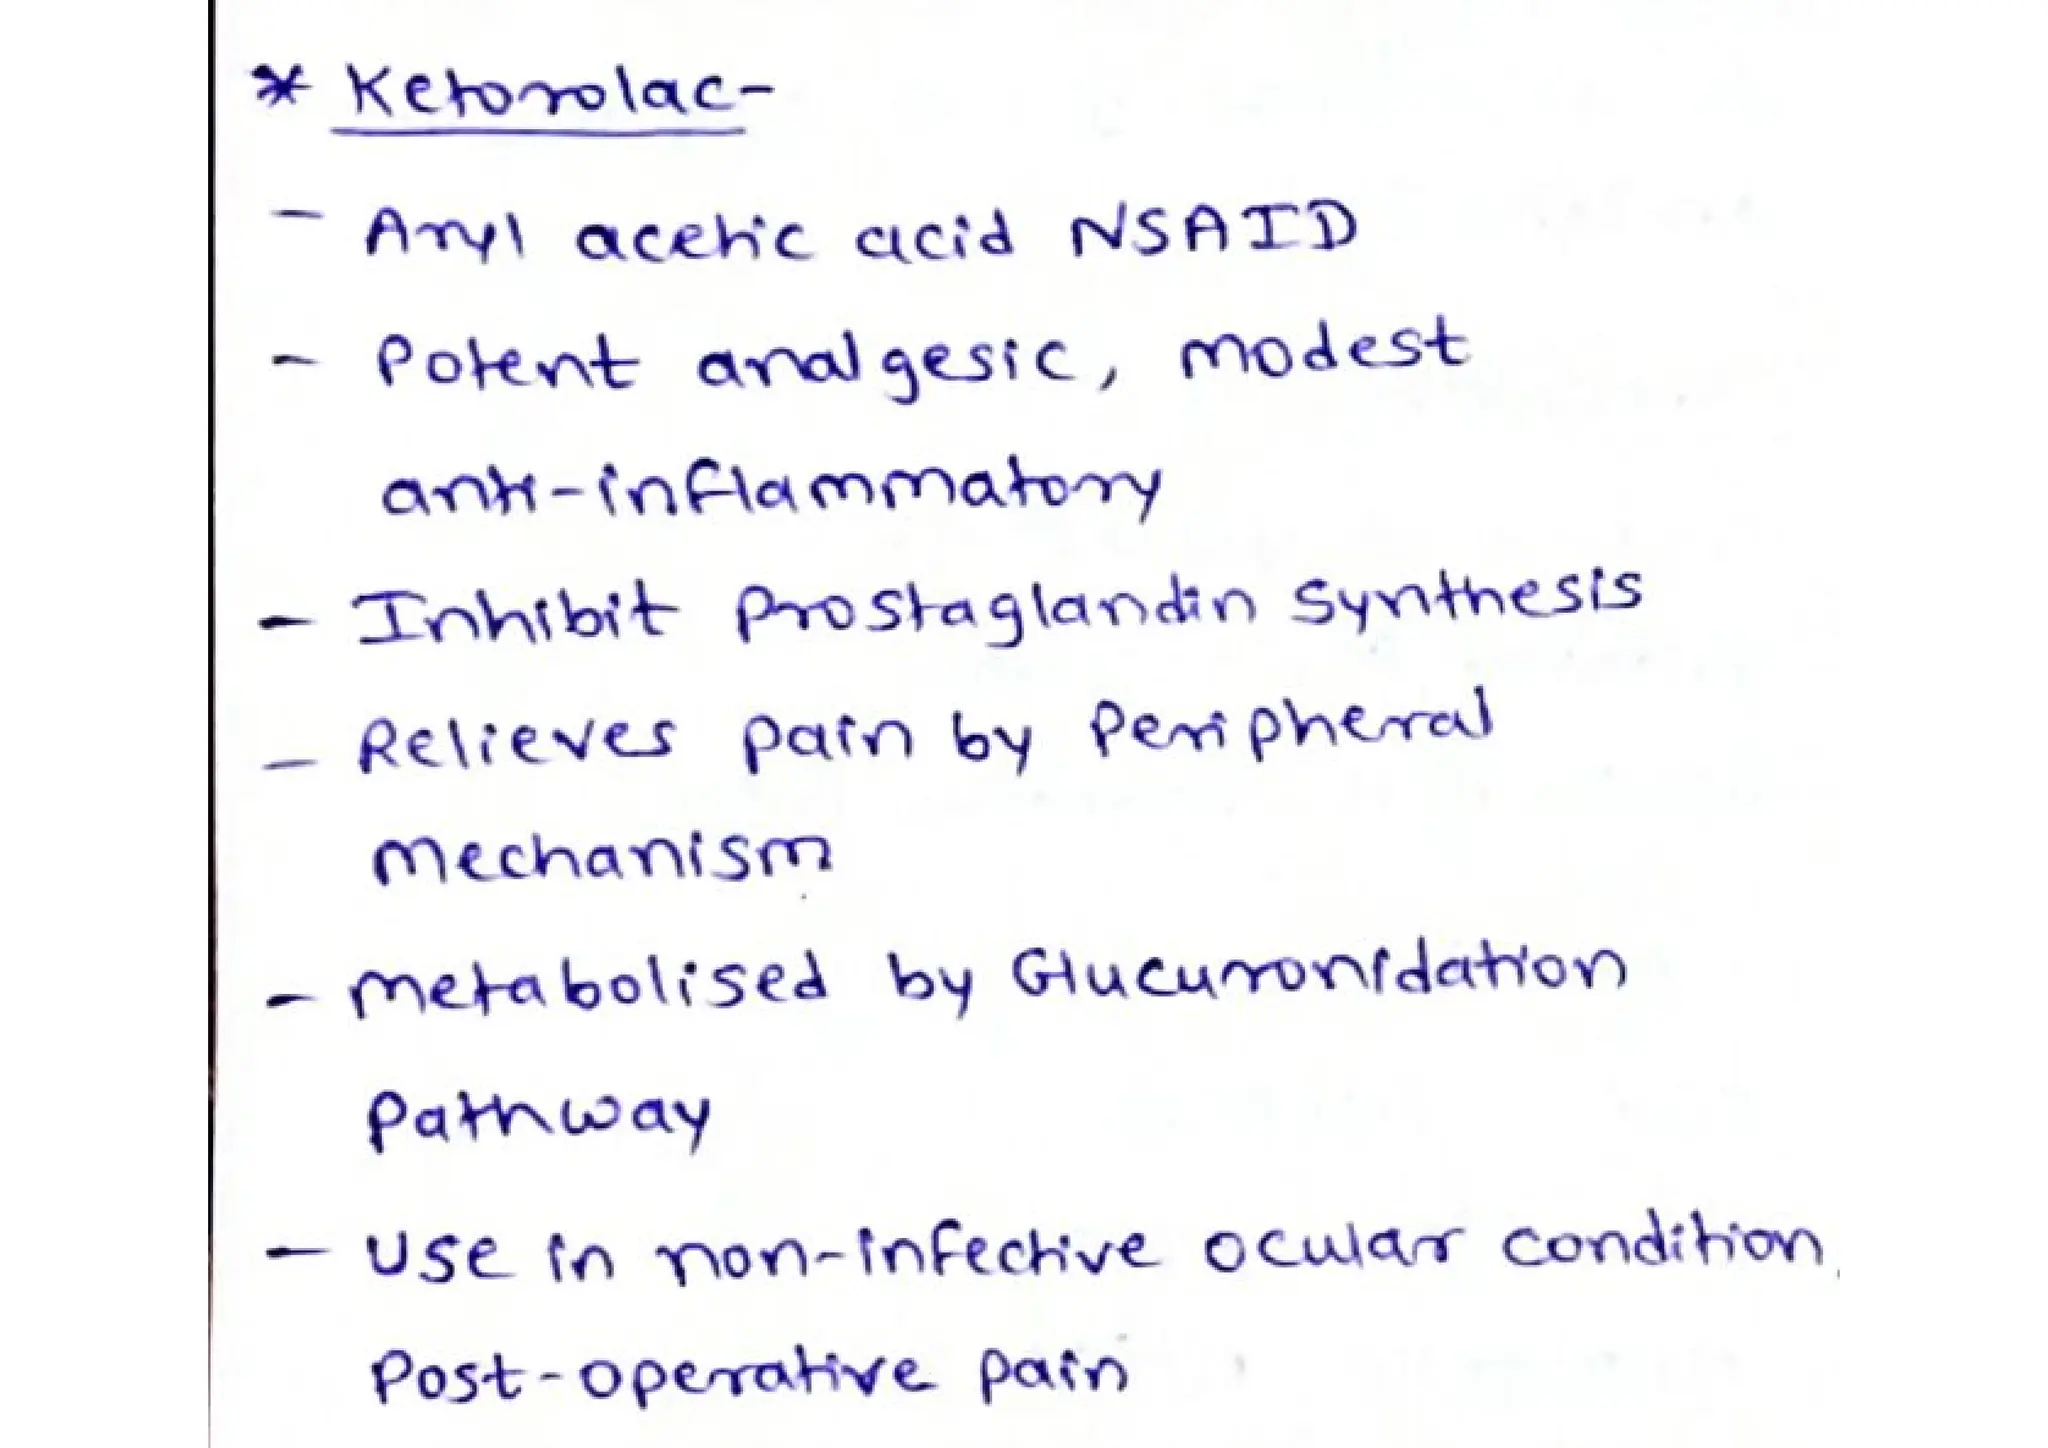 * Ketorolac-
- Aryl acetic acid NSAID
- Potent analgesic, modest
anti-inflammatory
- Inhibit Prostaglandin synthesis
- Relieves pain by Peripheral
mechanism
- Metabolised by Glucuronidation
Pathway
- Use in non-infective ocular condition,
Post-operative pain